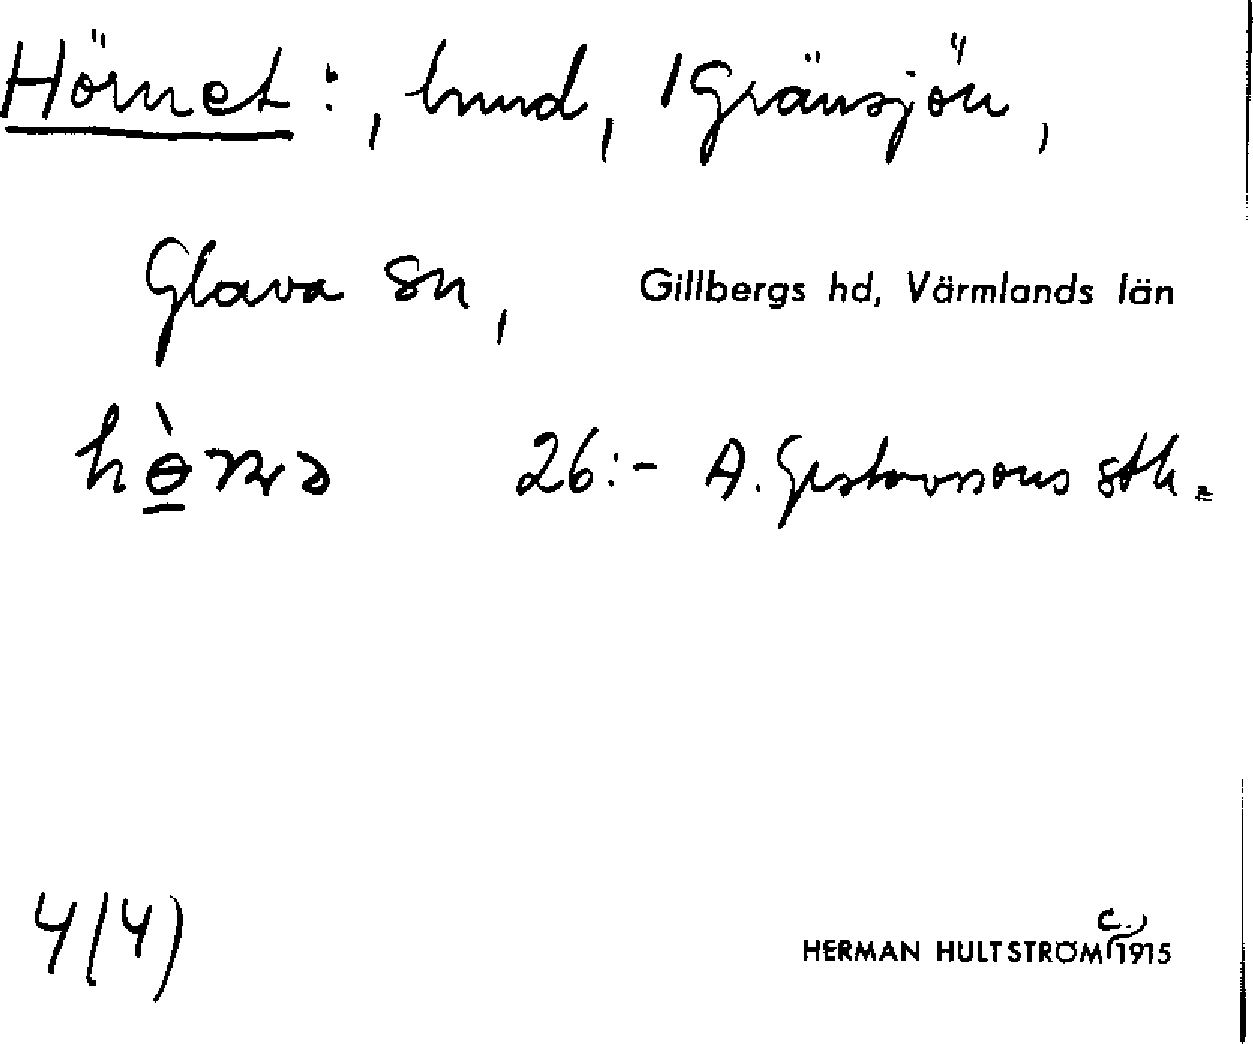 Hörnet :, lund, 1 Gränsjön,
Glava sn, Gillbergs hd, Värmlands län
26:- A. Gustavssons stk.
4(4)
HERMAN HULTSTRÖM (c.) 1915